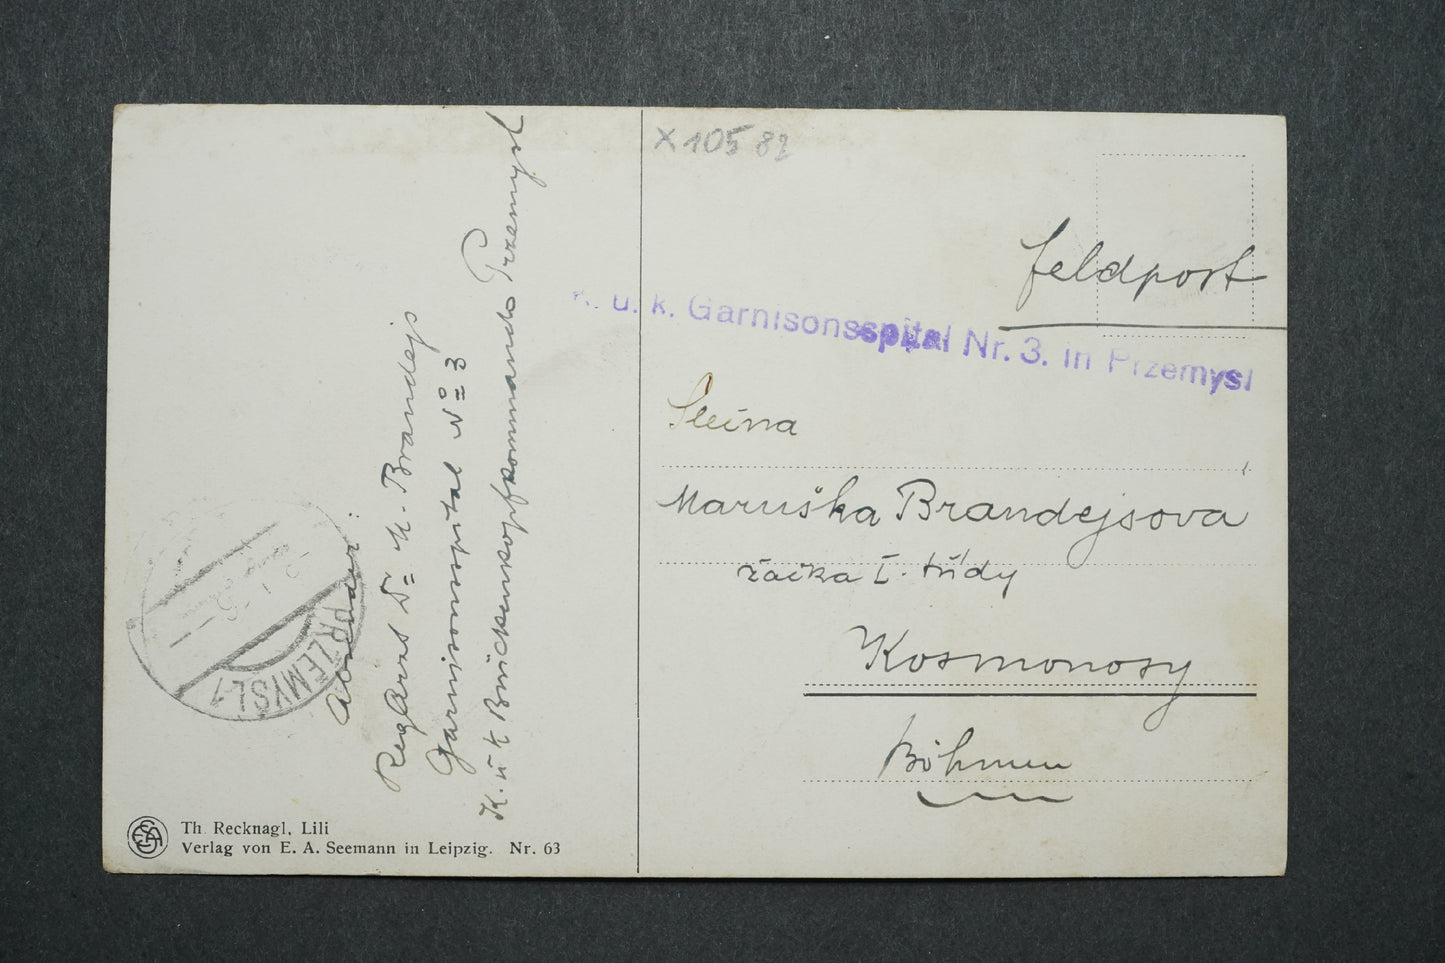 X 10582
Feldpost
K. u. k. Garnisonsspital Nr. 3. in Przemysl
Slečna
Maruška Brandejsova
žačka I. třídy
Kosmonosy
Böhmen
PRZEMYŚL 1
RegArzt Dr M. Brandejs
Garnisonsspital No 3
K. u k Brückenkopfkommando Przemysl
Th. Recknagl, Lili
Verlag von E. A. Seemann in Leipzig. Nr. 63